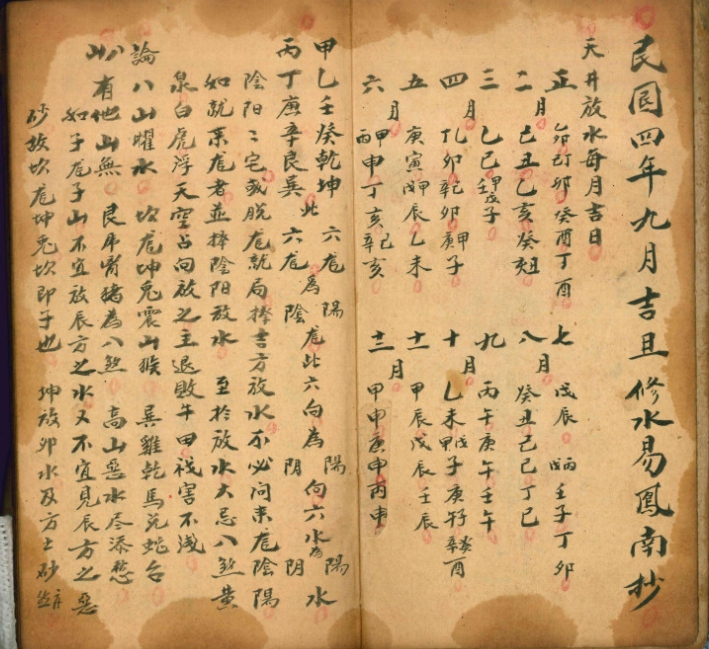 民国四年九月吉旦修水易鳳南抄
天井放水每月吉日
正月 卯 卯癸酉丁酉
二月 己丑乙亥癸
三月 乙巳甲子
四月 乙卯乾卯庚子甲子
五月 庚寅甲辰乙未
六月 甲申丙申丁亥辛亥己亥
七月 戊辰 壬子丁卯
八月 癸丑己巳丁巳
九月 丙午庚午壬午
十月 乙未甲子庚子辛酉
十一月 甲辰戊辰壬辰
十二月 甲申庚申丙申
甲乙壬癸乾坤此六龙為陽龙此六向為陽向六水為陽水
丙丁庚辛艮巽六龙陰 阴 阴
陰陽二宅或脱龙就局擇吉方放水不必问来龙陰陽
如就来龙者並擇陰陽放水 至於放水大忌八煞黄
泉白虎浮天空占向放之主退敗牛田 害不浅
論八山曜水 坎龙坤兔震山猴 巽雞乾馬兑蛇台
八山有他山無 艮乕 猪為八煞 高山 水尽添愁
如子龙子山不宜放辰方之水又不宜見辰方之惡
砂故坎龙坤兔坎即子也 坤放卯水及方士砂